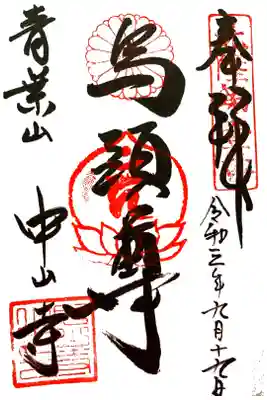 奉拝
令和三年九月十六日
馬頭尊
青葉山
中山寺